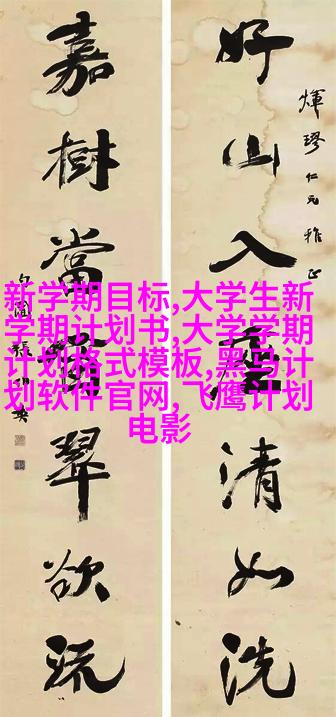 煇璆仁兄雅正
好山入 清如洗
嘉樹當 翠欲流
新学期目标,大学生新
学期计划书,大学学期
计划格式模板,黑马计
划软件官网,飞鹰计划
电影